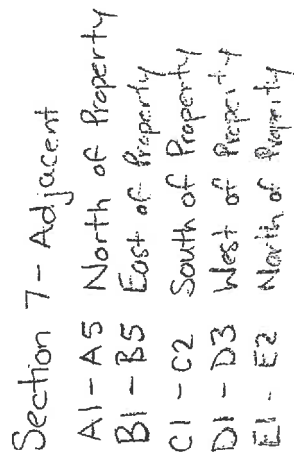 Section 7 - Adjacent
A1 - A5 North of Property
B1 - B5 East of Property
C1 - C2 South of Property
D1 - D3 West of Property
E1 - E2 North of Property